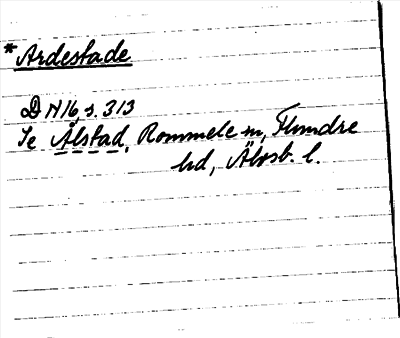 *Ardestade
DN 16, s. 313
Se Ålstad, Rommele sn, Flundre
hd, Älvsb. l.